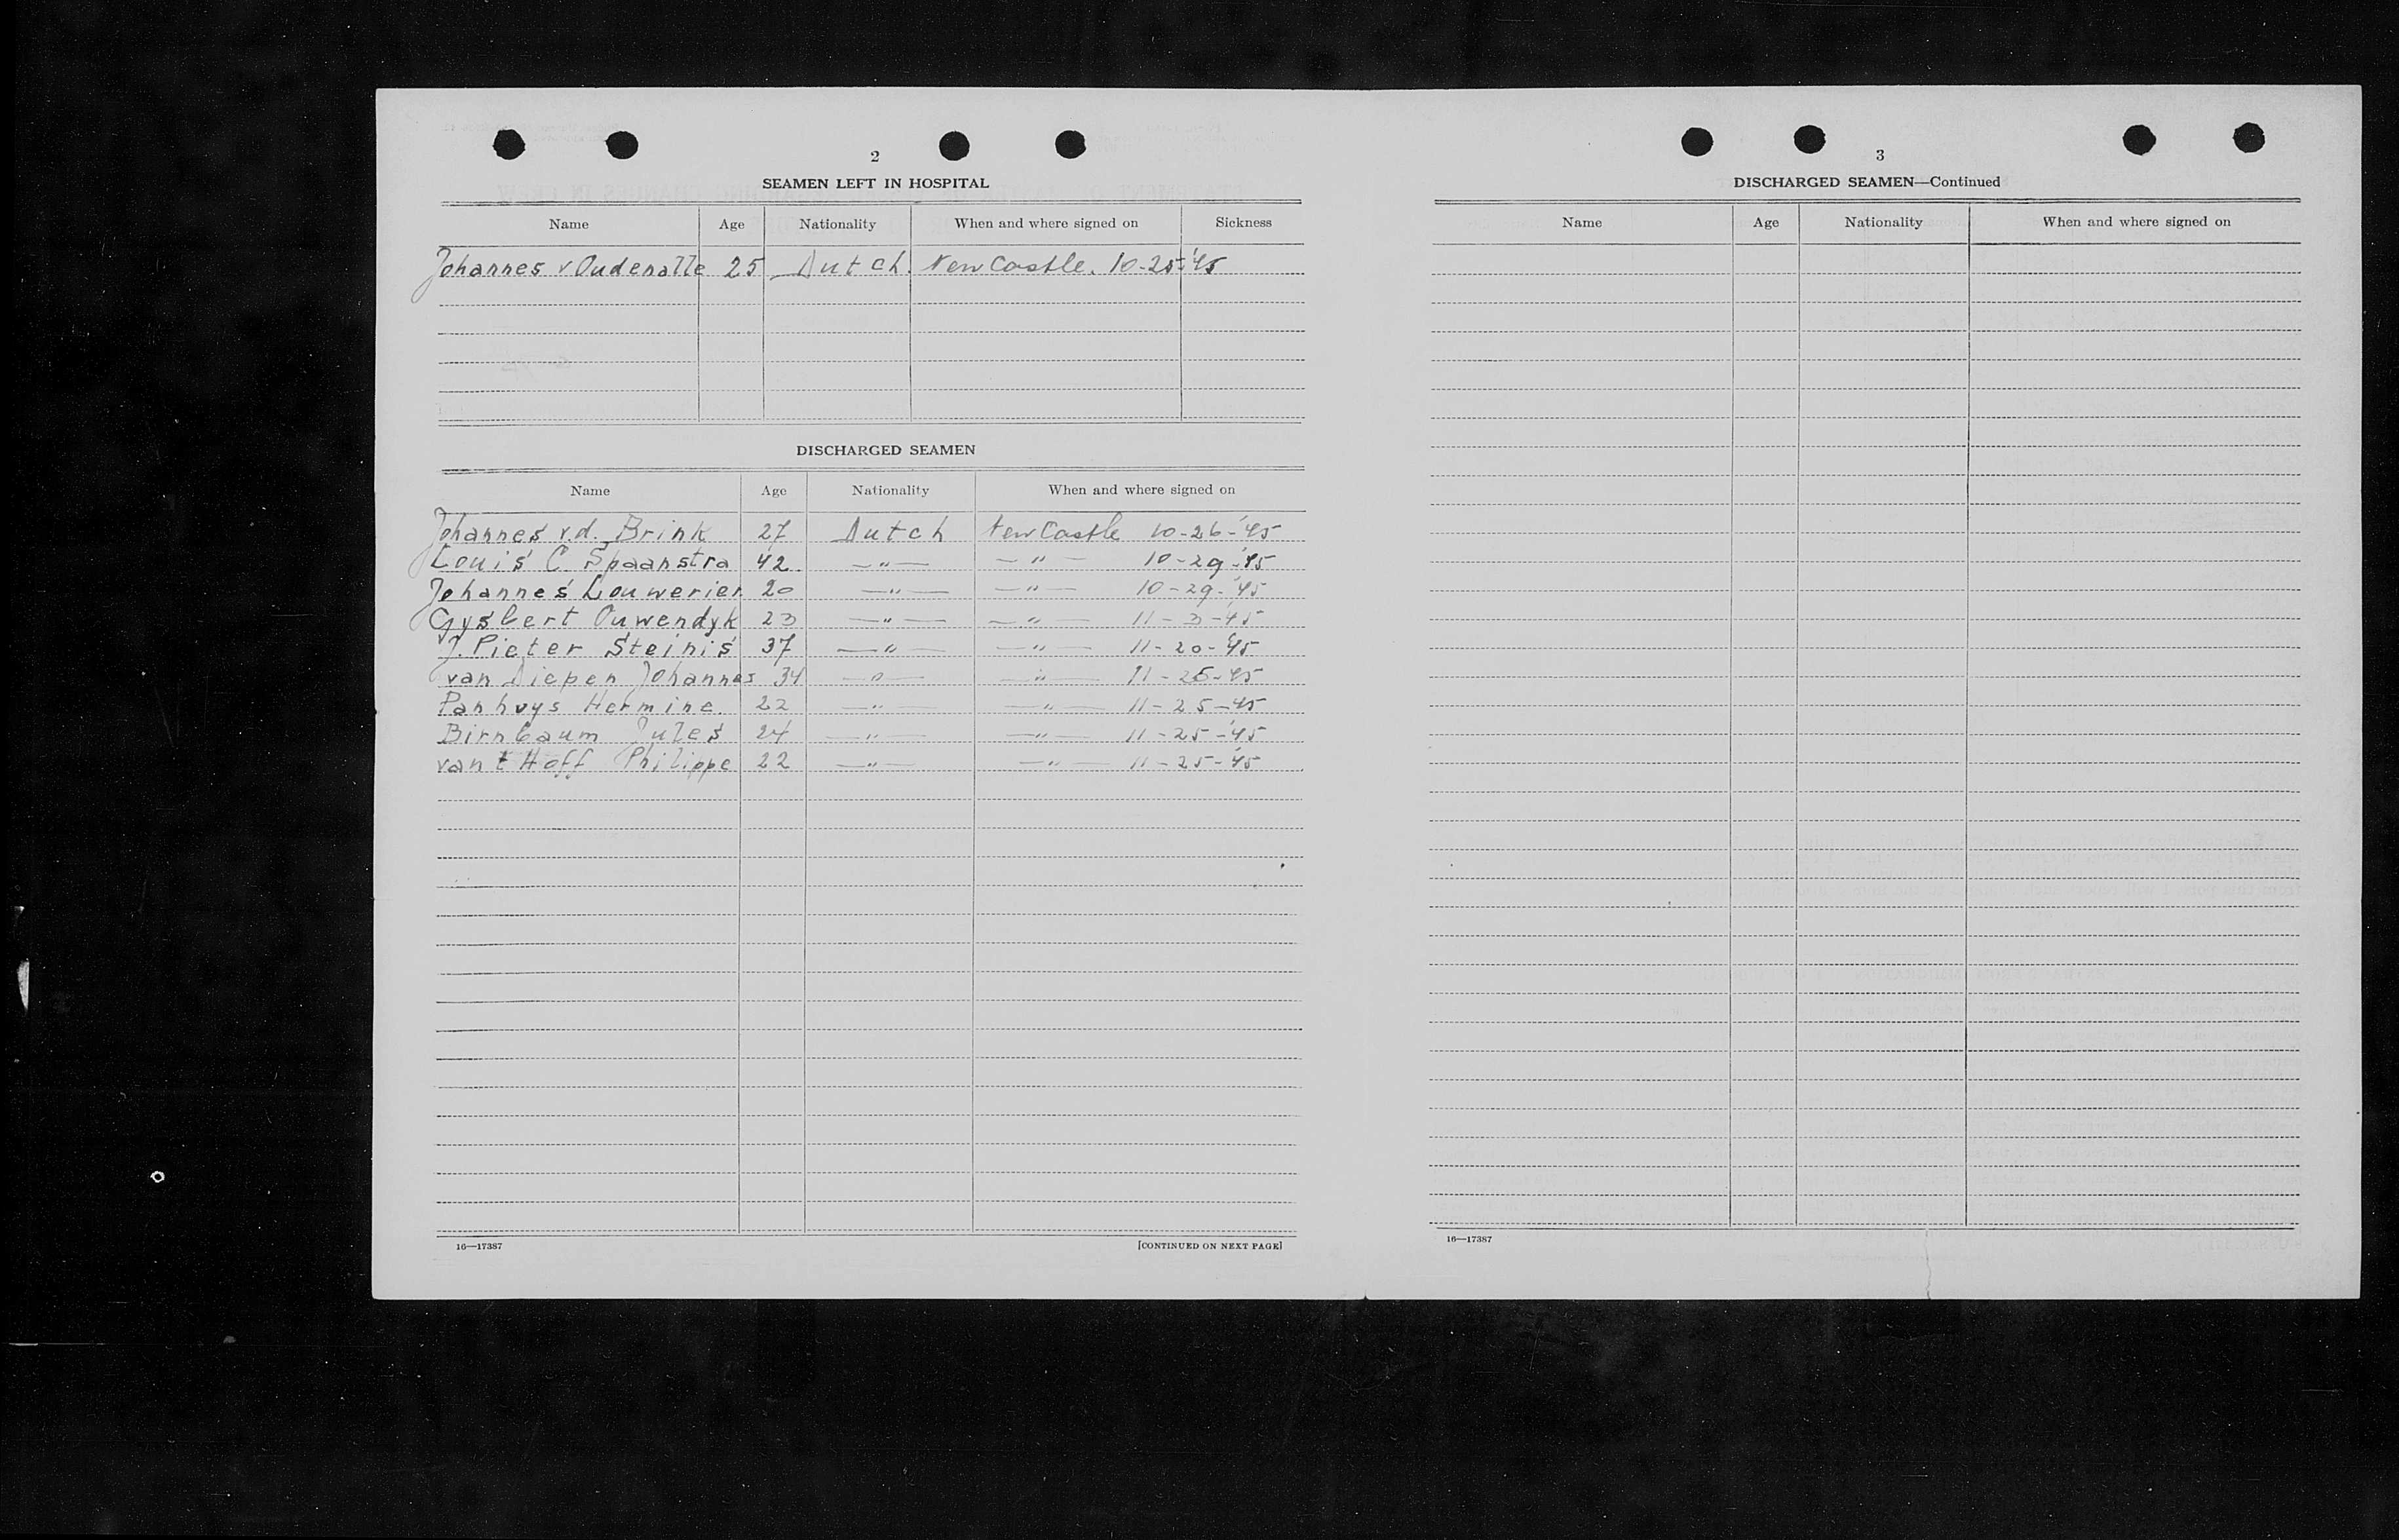 2
SEAMEN LEFT IN HOSPITAL
Name Age Nationality When and where signed on Sickness
Johannes v Oudenalle 25 Dutch. New Castle. 10-25-'45
DISCHARGED SEAMEN
Name Age Nationality When and where signed on
Johannes v.d. Brink 27 Dutch New Castle 10-26-'45
Louis C. Spaanstra 42 —"— —"— 10-29-'45
Johannes Louwerier 20 —"— —"— 10-29-'45
Gysbert Ouwendyk 23 —"— —"— 11-3-'45
J. Pieter Steinis 37 —"— —"— 11-20-'45
van Diepen Johannes 34 —"— —"— 11-25-'45
Panhuys Hermine 22 —"— —"— 11-25-'45
Birnbaum Jules 24 —"— —"— 11-25-'45
van t Hoff Philippe 22 —"— —"— 11-25-'45
16—17387 [CONTINUED ON NEXT PAGE]
3
DISCHARGED SEAMEN—Continued
Name Age Nationality When and where signed on
16—17387